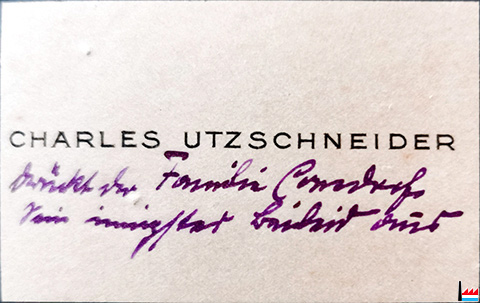 CHARLES UTZSCHNEIDER
drückt der Familie
Sein innigstes Beileid aus